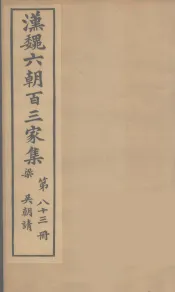 漢魏六朝百三家集
梁 吳朝請
第八十三冊